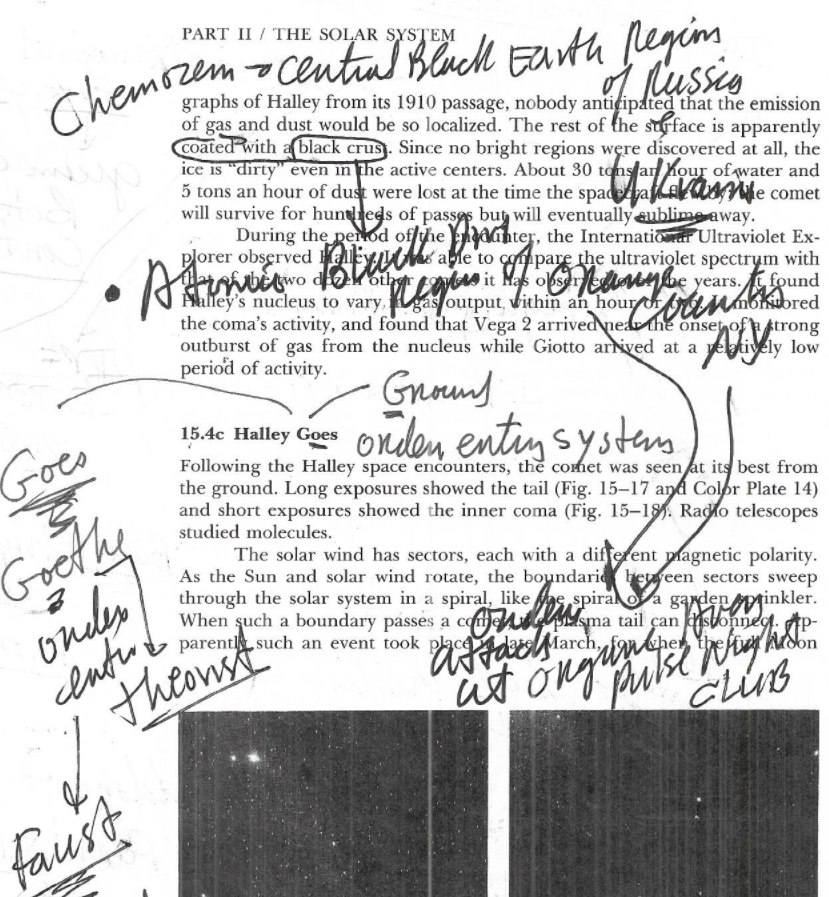 PART II / THE SOLAR SYSTEM
Chernozem → Central Black Earth Region
of Russia
graphs of Halley from its 1910 passage, nobody anticipated that the emission
of gas and dust would be so localized. The rest of the surface is apparently
coated with a black crust. Since no bright regions were discovered at all, the
ice is “dirty” even in the active centers. About 30 tons an hour of water and
5 tons an hour of dust were lost at the time the spacecraft flew by. The comet
will survive for hundreds of passes but will eventually sublime away.
During the period of the encounter, the International Ultraviolet Ex-
plorer observed Halley. It was able to compare the ultraviolet spectrum with
that of the two dozen other comets it has observed over the years. It found
• Black Dirt
Region of Orange
County
NY
Halley's nucleus to vary in gas output within an hour or two. It monitored
the coma's activity, and found that Vega 2 arrived near the onset of a strong
outburst of gas from the nucleus while Giotto arrived at a relatively low
period of activity.
Ground
15.4c Halley Goes
order entry system
Following the Halley space encounters, the comet was seen at its best from
the ground. Long exposures showed the tail (Fig. 15–17 and Color Plate 14)
and short exposures showed the inner coma (Fig. 15–18). Radio telescopes
studied molecules.
Goes
Goethe
order
theorist
Faust
The solar wind has sectors, each with a different magnetic polarity.
As the Sun and solar wind rotate, the boundaries between sectors sweep
through the solar system in a spiral, like the spiral of a garden sprinkler.
When such a boundary passes a comet, the plasma tail can disconnect. Ap-
parently such an event took place in late March, for when the full Moon
order
attack
at
Pulse Night
CLUB